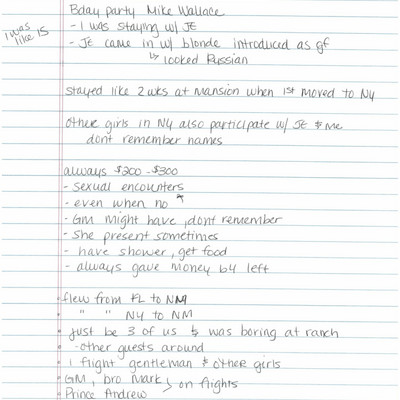 Bday party Mike Wallace
I was like 15
- I was staying w/ JE
- JE came in w/ blonde introduced as gf
↳ looked Russian
stayed like 2 wks at mansion when 1st moved to NY
other girls in NY also participate w/ JE & me
dont remember names
always $200 - $300
- sexual encounters
- even when no ↗
- GM might have, dont remember
- She present sometimes
- have shower, get food
- always gave money b4 left
• flew from FL to NM
• " " NY to NM
• just be 3 of us & was boring at ranch
- other guests around
• 1 flight gentleman & other girls
• GM, bro Mark > on flights
• Prince Andrew